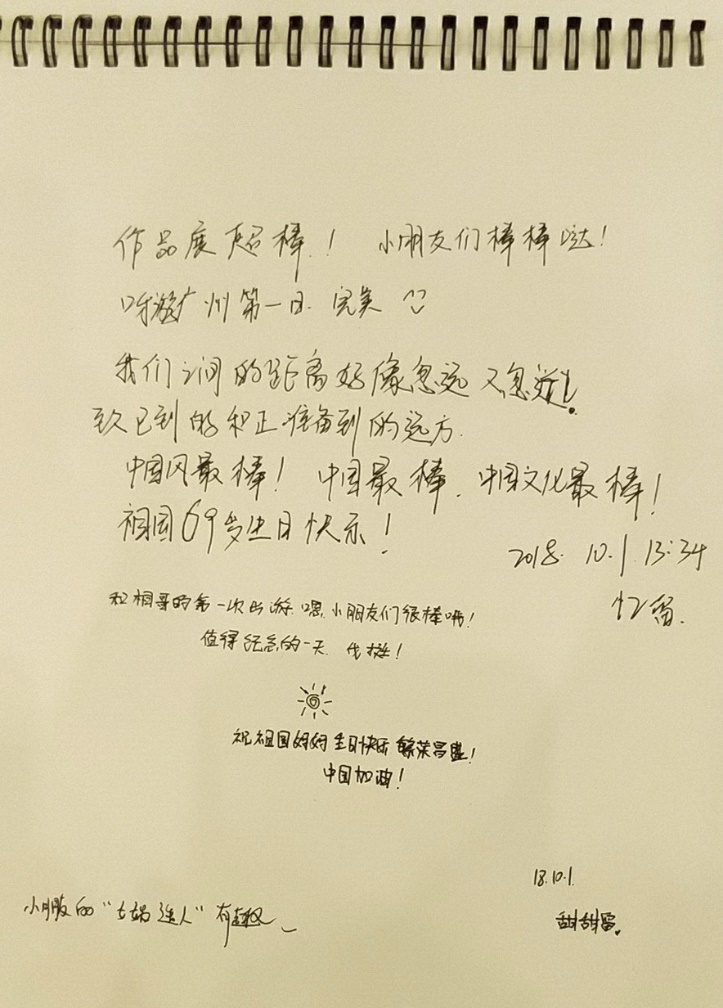 作品展超棒！ 小朋友们棒棒哒！
游广州第一日 完美
我们之间的距离好像忽远又忽近！
致已到的和正准备到的远方.
中国风最棒！ 中国最棒. 中国文化最棒！
祖国69岁生日快乐！
2018. 10.1 13:34
忆留.
和相哥的第一次出游 嘿 小朋友们很棒哦！
值得纪念的一天
祝祖国妈妈生日快乐 繁荣昌盛！
中国加油！
18.10.1.
甜甜留.
小朋友的“女娲造人”有趣